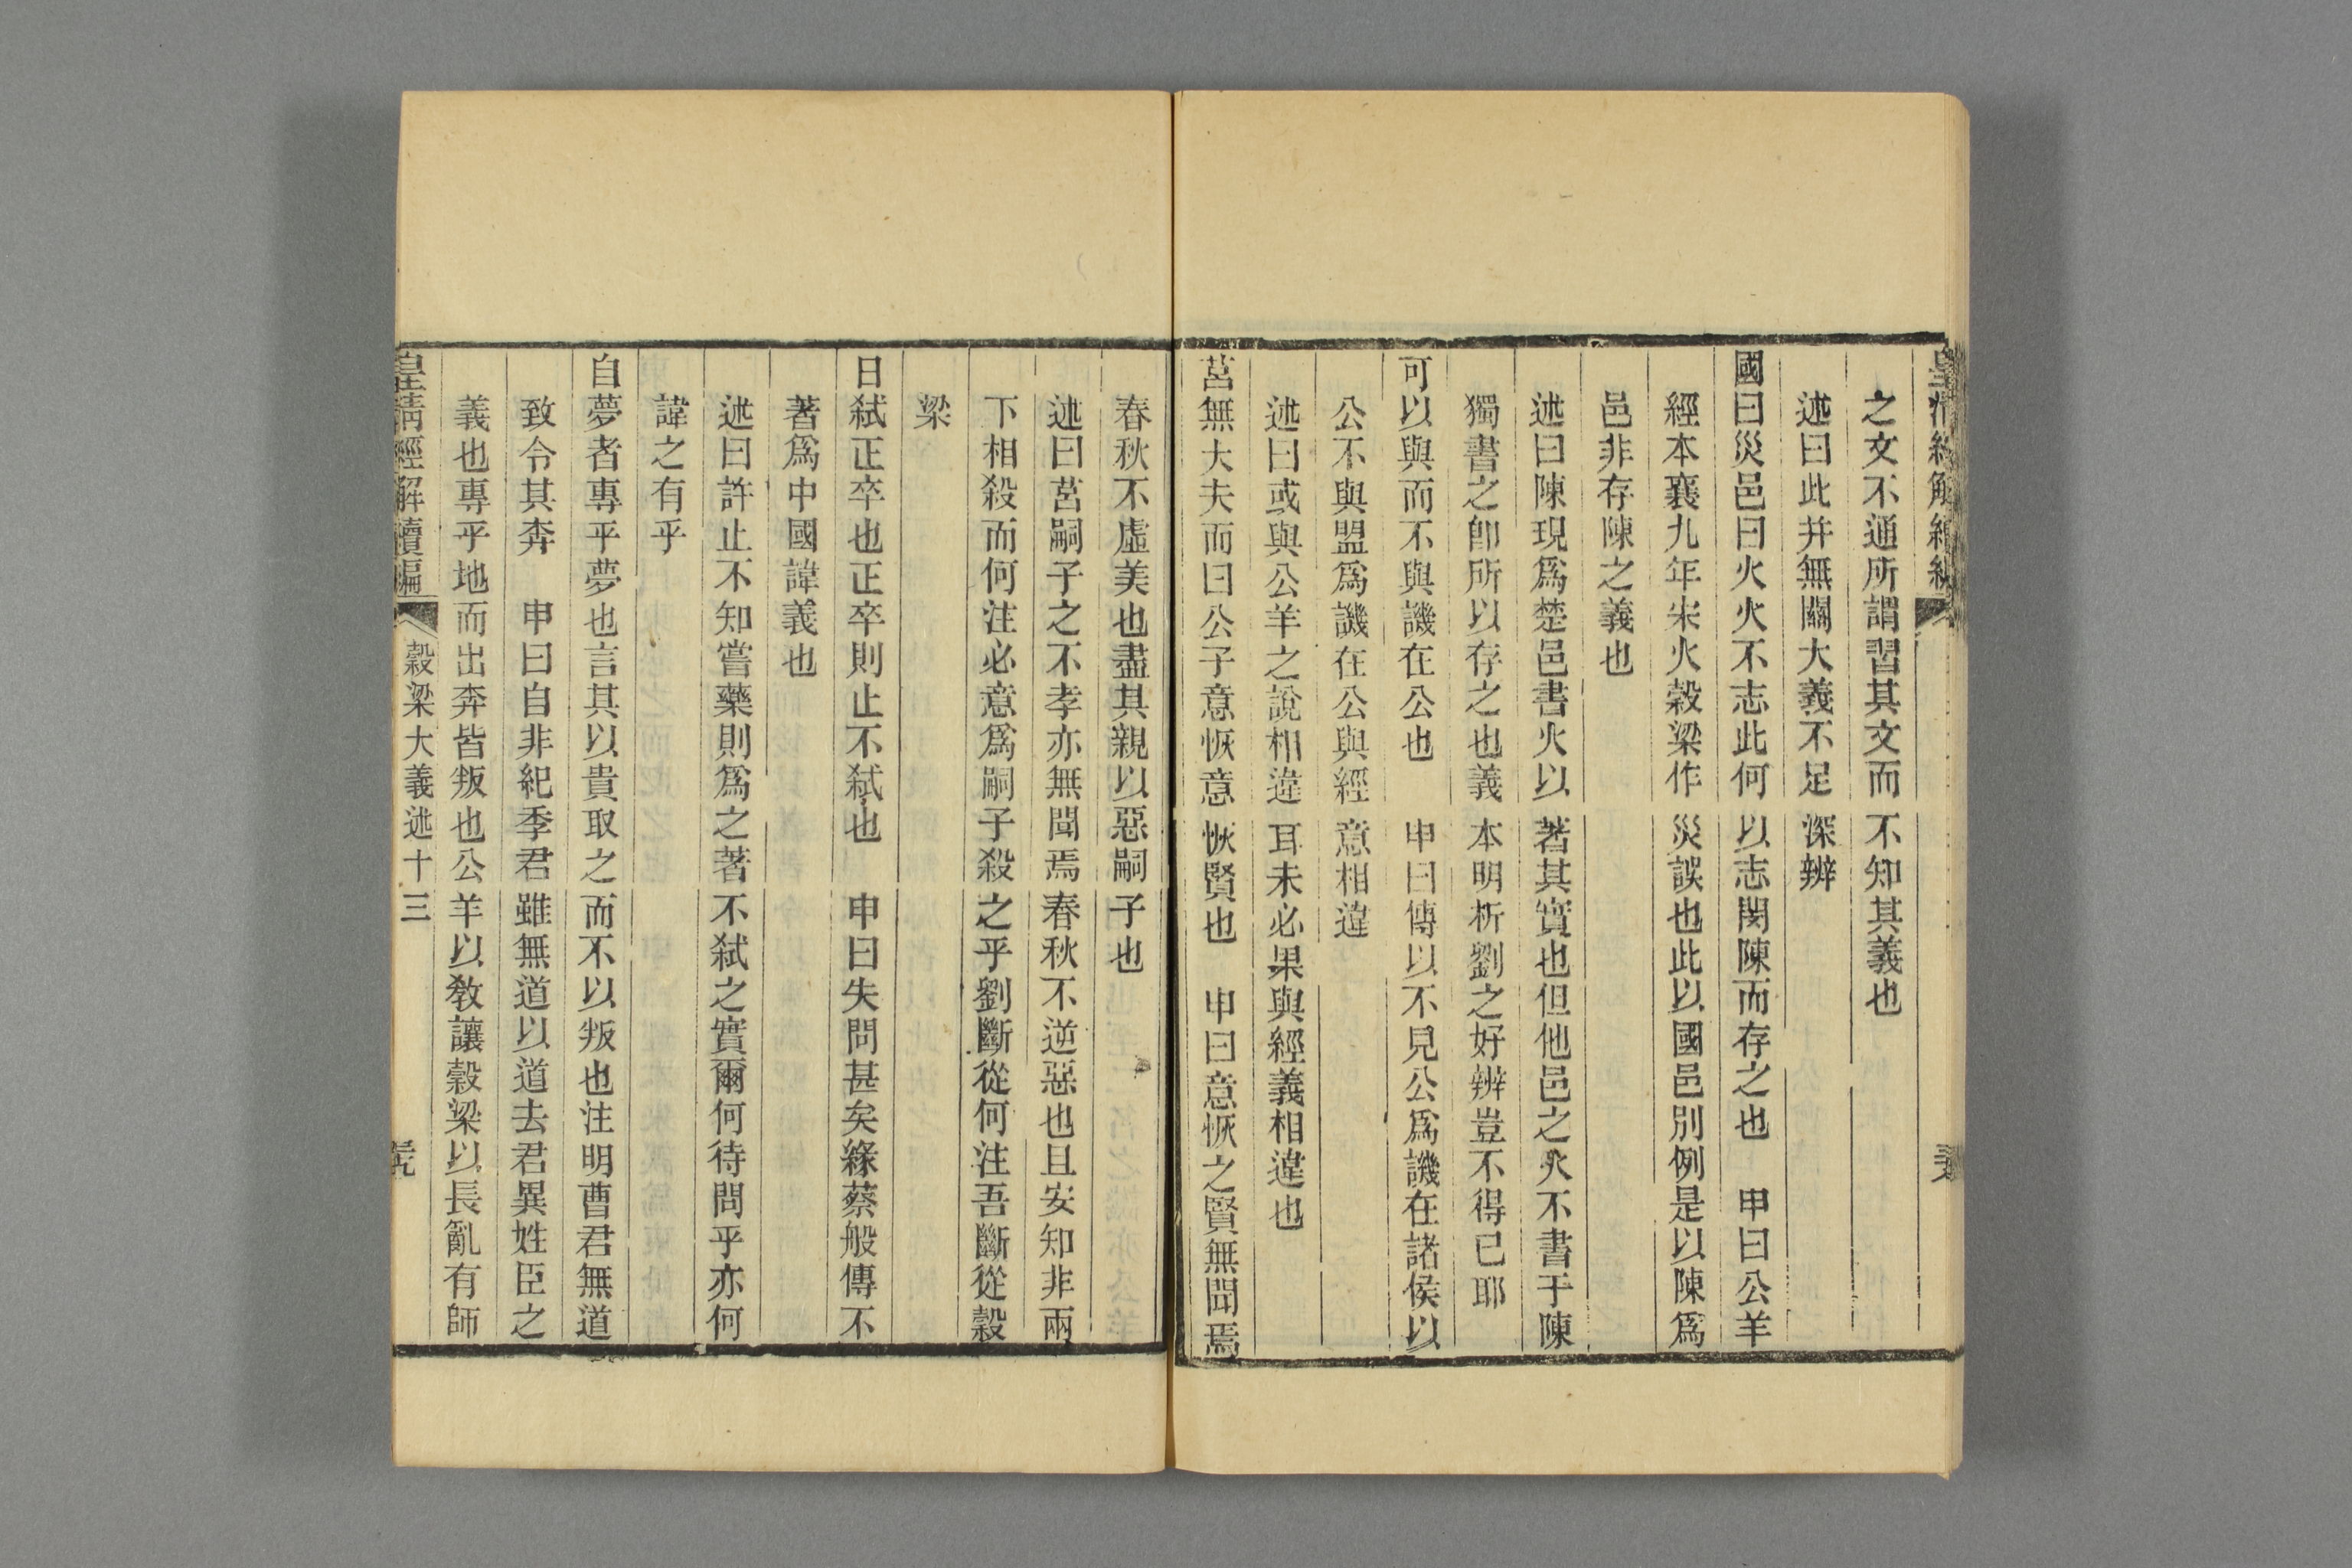 皇清經解續編
之文不通所謂習其文而不知其義也
述曰此并無關大義不足深辨
國曰災邑曰火火不志此何以志閔陳而存之也　申曰公羊
經本襄九年宋火穀梁作災誤也此以國邑別例是以陳爲
邑非存陳之義也
述曰陳現爲楚邑書火以著其實也但他邑之火不書于陳
獨書之卽所以存之也義本明析劉之好辨豈不得已耶
可以與而不與譏在公也　申曰傳以不見公爲譏在諸侯以
公不與盟爲譏在公與經意相違
述曰或與公羊之說相違耳未必果與經義相違也
莒無大夫而曰公子意恢意恢賢也　申曰意恢之賢無聞焉
春秋不虛美也盡其親以惡嗣子也
述曰莒嗣子之不孝亦無聞焉春秋不逆惡也且安知非兩
下相殺而何注必意爲嗣子殺之乎劉斷從何注吾斷從穀
梁
日弑正卒也正卒則止不弑也　申曰失問甚矣緣蔡般傳不
著爲中國諱義也
述曰許止不知嘗藥則爲之著不弑之實爾何待問乎亦何
諱之有乎
自夢者專乎夢也言其以貴取之而不以叛也注明曹君無道
致令其奔　申曰自非紀季君雖無道以道去君異姓臣之
義也專乎地而出奔皆叛也公羊以教讓穀梁以長亂有師
皇清經解續編　穀梁大義述十三